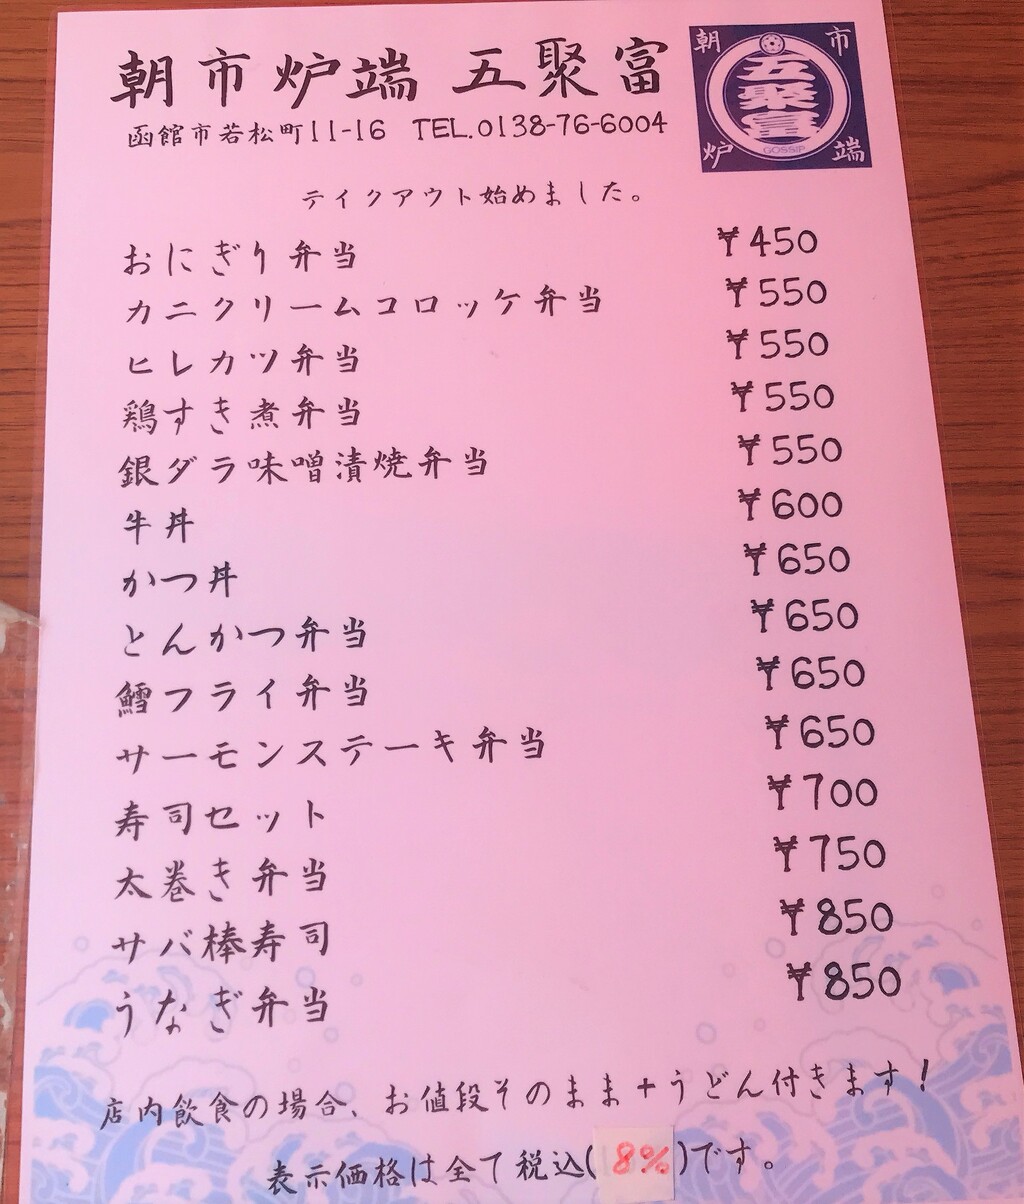 朝市炉端 五聚富
函館市若松町11-16 TEL.0138-76-6004
朝市
五聚富
GOSSIP
炉端
テイクアウト始めました。
おにぎり弁当 ¥450
カニクリームコロッケ弁当 ¥550
ヒレカツ弁当 ¥550
鶏すき煮弁当 ¥550
銀ダラ味噌漬焼弁当 ¥550
牛丼 ¥600
かつ丼 ¥650
とんかつ弁当 ¥650
鱈フライ弁当 ¥650
サーモンステーキ弁当 ¥650
寿司セット ¥700
太巻き弁当 ¥750
サバ棒寿司 ¥850
うなぎ弁当 ¥850
店内飲食の場合、お値段そのまま+うどん付きます!
表示価格は全て税込(8%)です。